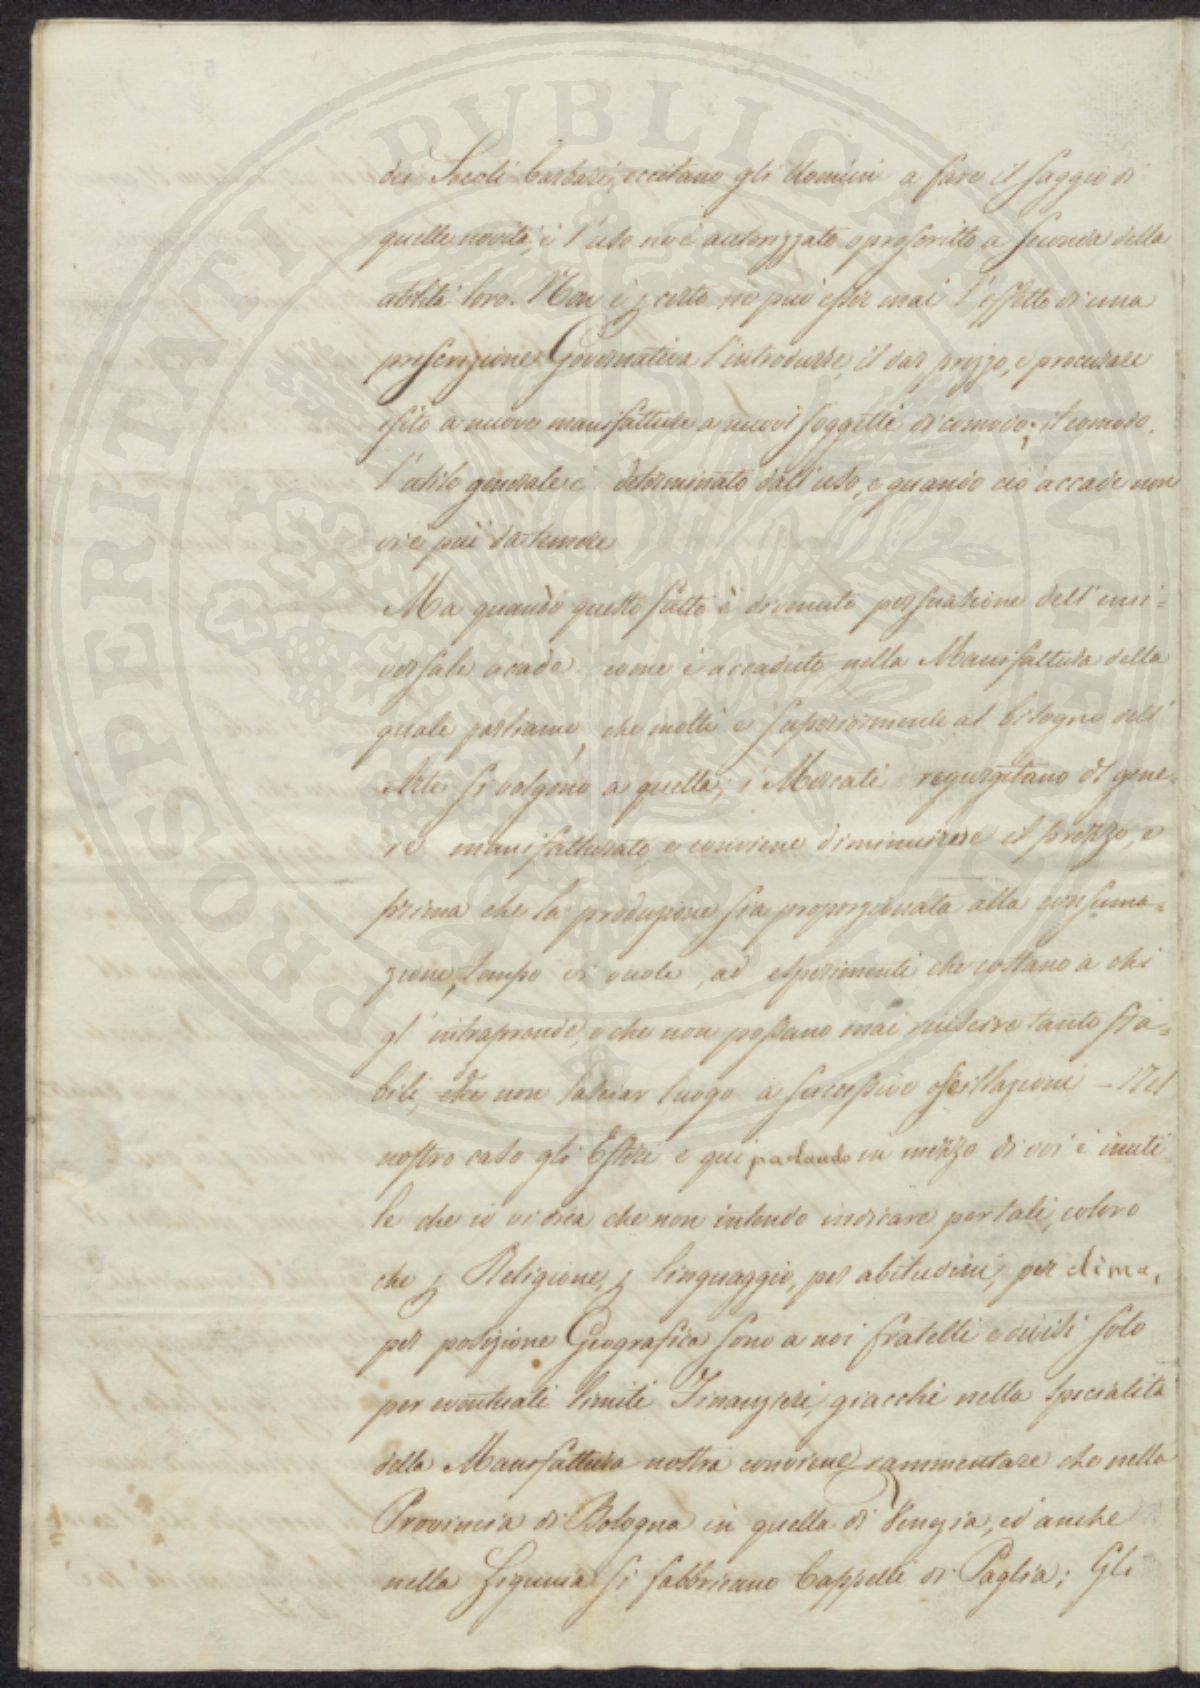 dei Secoli barbari, eccitano gli Uomini a fare il saggio di
quelle novità, e l'uso ne è autorizzato, o proscritto a seconda della
utilità loro. Non è p certo ne può esser mai l'effetto di una
prescrizione Governativa l'introdurre, il dar prezzo, e procurare
esito a nuove manifatture a nuovi soggetti di comodo; il comodo,
l'utile generale è determinato dall'uso, e quando ciò accade non
vi è più da temere
Ma quando questo fatto è divenuto persuasione dell'uni=
versale acade come è accaduto nella Manifattura della
quale parliamo, che molti e superiormente al bisogno dell'
Arte si volgono a quella; i Mercati regurgitano di gene=
re manifatturato, e conviene diminuirne il prezzo, e
prima che la produzione sia proporzionata alla consuma=
zione, tempo vi vuole, ad esperimenti che costano a chi
gl'intraprende, e che non possano mai riuscire tanto sta=
bili, che non lasciar luogo a successive oscillazioni – Nel
nostro caso gli Esteri e qui parlando in mezzo di voi è inuti
le che io vi dica che non intendo indicare per tali, coloro
che p Religione, p linguaggio, per abitudini, per clima,
per posizione Geografica sono a noi fratelli e divisi solo
per eventuali limiti Finanzieri, giacchè nella specialità
della Manifattura nostra conviene rammentare che nella
Provincia di Bologna in quella di Venezia, ed anche
nella Liguria si fabbricano Cappelli di Paglia; Gli
PROSPERITATI PUBLICAE AUGENDAE